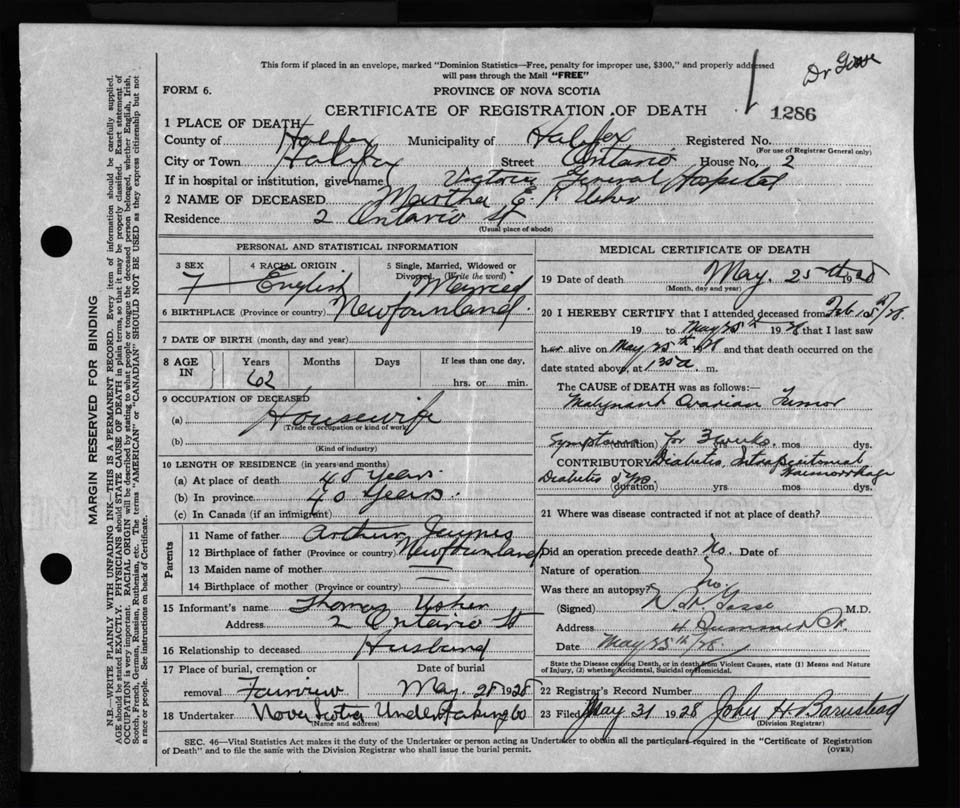 This form if placed in an envelope, marked "Dominion Statistics—Free, penalty for improper use, $300," and properly addressed
will pass through the Mail "FREE"
Dr Gosse
FORM 6.
PROVINCE OF NOVA SCOTIA
CERTIFICATE OF REGISTRATION OF DEATH
1286
1 PLACE OF DEATH
County of Halifax Municipality of Halifax Registered No.
(For use of Registrar General only)
City or Town Halifax Street Ontario House No. 2
If in hospital or institution, give name Victoria General Hospital
2 NAME OF DECEASED Martha E. Usher
Residence 2 Ontario St
(Usual place of abode)
PERSONAL AND STATISTICAL INFORMATION
3 SEX 4 RACIAL ORIGIN 5 Single, Married, Widowed or
Divorced (Write the word)
F English Married
6 BIRTHPLACE (Province or country) Newfounland.
7 DATE OF BIRTH (month, day and year)
8 AGE IN Years Months Days If less than one day,
62 hrs. or min.
9 OCCUPATION OF DECEASED
(a) Housewife
(Trade or occupation or kind of work)
(b)
(Kind of industry)
10 LENGTH OF RESIDENCE (in years and months)
(a) At place of death 40 Years.
(b) In province 40 Years.
(c) In Canada (if an immigrant)
Parents
11 Name of father Arthur
12 Birthplace of father (Province or country) Newfounland
13 Maiden name of mother —
14 Birthplace of mother (Province or country) —
15 Informant's name Thomas Usher
Address 2 Ontario St
16 Relationship to deceased Husband
17 Place of burial, cremation or Date of burial
removal Fairview May. 28 1928
18 Undertaker Nova Scotia Undertaking Co
(Name and address)
MEDICAL CERTIFICATE OF DEATH
19 Date of death May. 25th 1928
(Month, day and year)
20 I HEREBY CERTIFY that I attended deceased from Feb. 15th/28.
19 to May 25th 1928 that I last saw
her alive on May 25th and that death occurred on the
date stated above, at 1.30 a. m.
The CAUSE OF DEATH was as follows:—
Malignant Ovarian Tumor
Symptoms (duration) for 3 weeks. mos dys.
CONTRIBUTORY Diabetis, Intraperitoneal
Haemorrhage
Diabetis (duration) yrs mos dys.
21 Where was disease contracted if not at place of death?
Did an operation precede death? No. Date of
Nature of operation
Was there an autopsy? No.
(Signed) Gosse M.D.
Address Summer St.
Date May 25th/28
State the Disease causing Death, or in death from Violent Causes, state (1) Means and Nature
of Injury, (2) whether Accidental, Suicidal or Homicidal.
22 Registrar's Record Number
23 Filed May 31 1928 John H. Barnstead
(Division Registrar)
SEC. 46—Vital Statistics Act makes it the duty of the Undertaker or person acting as Undertaker to obtain all the particulars required in the "Certificate of Registration
of Death" and to file the same with the Division Registrar who shall issue the burial permit.
(OVER)
MARGIN RESERVED FOR BINDING
N.B.—WRITE PLAINLY WITH UNFADING INK—THIS IS A PERMANENT RECORD. Every item of information should be carefully supplied.
AGE should be stated EXACTLY. PHYSICIANS should STATE CAUSE OF DEATH in plain terms, so that it may be properly classified. Exact statement of
OCCUPATION is very important. RACIAL ORIGIN will be described by stating to what people or tongue the deceased person belonged, whether English, Irish,
Scotch, French, German, Russian, Ruthenian, etc. The terms "AMERICAN" or "CANADIAN" SHOULD NOT BE USED as they express citizenship but not
a race or people. See instructions on back of Certificate.